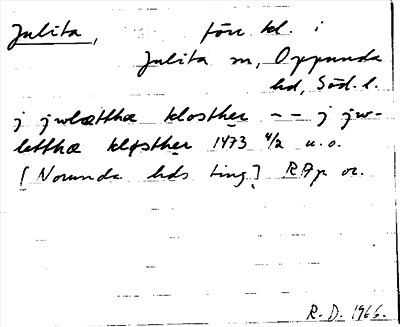 Julita, förr kl. i
Julita sn, Oppunda
hd, Söd. l.
j jwlætthæ klosther -- j jw-
letthæ kløsther 1473 4/2 u.o.
[Norunda hds ting] RAp or.
R.D. 1966.